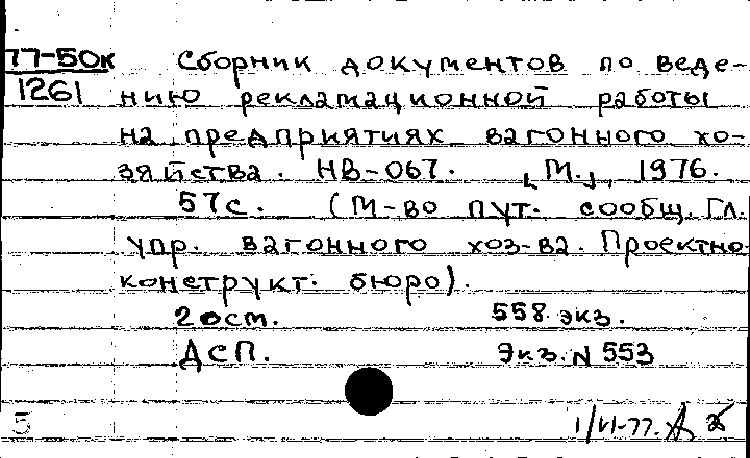 77-50к Сборник документов по веде-
1261 нию рекламационной работы
на предприятиях вагонного хо-
зяйства. НВ-067. [М.], 1976.
57с. (М-во пут. сообщ. Гл.
упр. вагонного хоз-ва. Проектно
конструкт. бюро).
558 экз.
ДСП. Экз. N 553
5 1/VI-77.